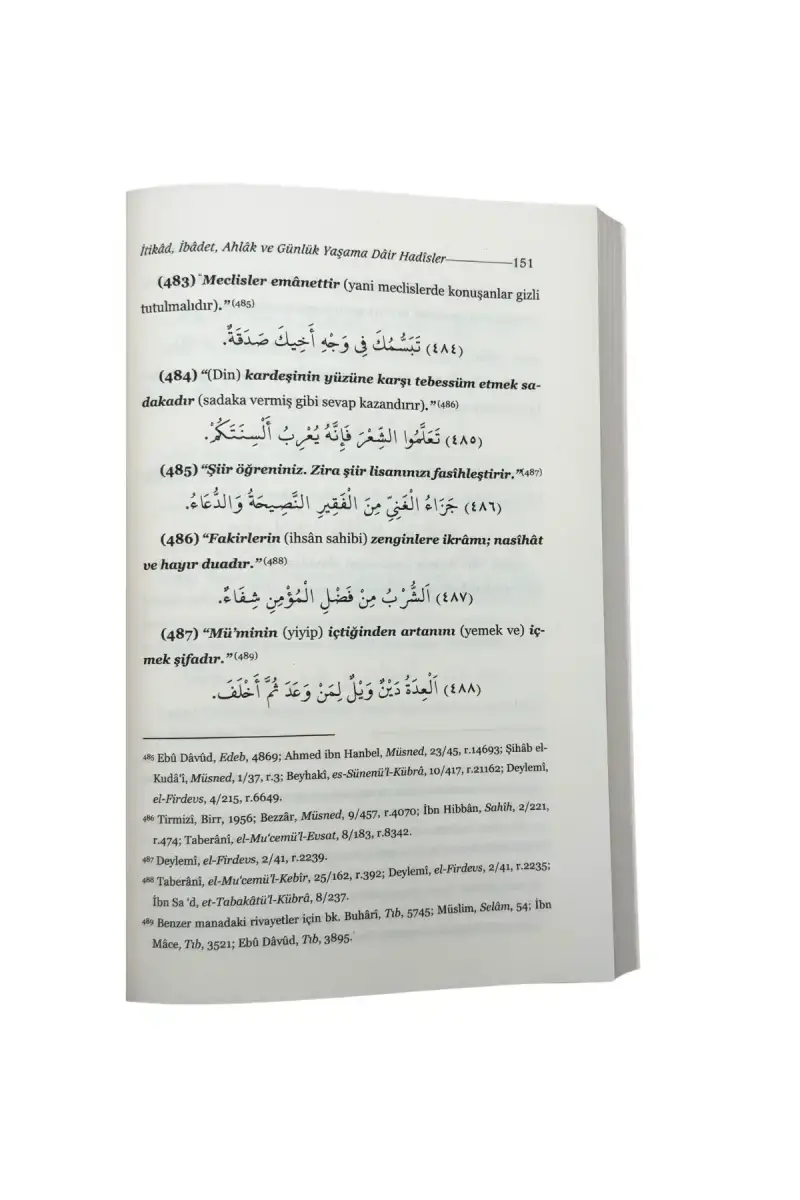 İtikâd, İbâdet, Ahlâk ve Günlük Yaşama Dâir Hadîsler 151
(483) "Meclisler emânettir (yani meclislerde konuşanlar gizli
tutulmalıdır)." (485)
(٤٨٤) تَبَسُّمُكَ فِى وَجْهِ أَخِيكَ صَدَقَةٌ.
(484) "(Din) kardeşinin yüzüne karşı tebessüm etmek sa-
dakadır (sadaka vermiş gibi sevap kazandırır)." (486)
(٤٨٥) تَعَلَّمُوا الشِّعْرَ فَإِنَّهُ يُعْرِبُ أَلْسِنَتَكُمْ.
(485) "Şiir öğreniniz. Zira şiir lisanınızı fasîhleştirir." (487)
(٤٨٦) جَزَاءُ الْغَنِىِّ مِنَ الْفَقِيرِ النَّصِيحَةُ وَالدُّعَاءُ.
(486) "Fakirlerin (ihsân sahibi) zenginlere ikrâmı; nasîhât
ve hayır duadır." (488)
(٤٨٧) اَلشُّرْبُ مِنْ فَضْلِ الْمُؤْمِنِ شِفَاءٌ.
(487) "Mü'minin (yiyip) içtiğinden artanını (yemek ve) iç-
mek şifadır." (489)
(٤٨٨) اَلْعِدَةُ دَيْنٌ وَيْلٌ لِمَنْ وَعَدَ ثُمَّ أَخْلَفَ.
485 Ebû Dâvûd, Edeb, 4869; Ahmed ibn Hanbel, Müsned, 23/45, r.14693; Şihâb el-
Kudâ'î, Müsned, 1/37, r.3; Beyhakî, es-Sünenü'l-Kübrâ, 10/417, r.21162; Deylemî,
el-Firdevs, 4/215, r.6649.
486 Tirmizî, Birr, 1956; Bezzâr, Müsned, 9/457, r.4070; İbn Hibbân, Sahîh, 2/221,
r.474; Taberânî, el-Mu'cemü'l-Evsat, 8/183, r.8342.
487 Deylemî, el-Firdevs, 2/41, r.2239.
488 Taberânî, el-Mu'cemü'l-Kebîr, 25/162, r.392; Deylemî, el-Firdevs, 2/41, r.2235;
İbn Sa'd, et-Tabakâtü'l-Kübrâ, 8/237.
489 Benzer manadaki rivayetler için bk. Buhârî, Tıb, 5745; Müslim, Selâm, 54; İbn
Mâce, Tıb, 3521; Ebû Dâvûd, Tıb, 3895.